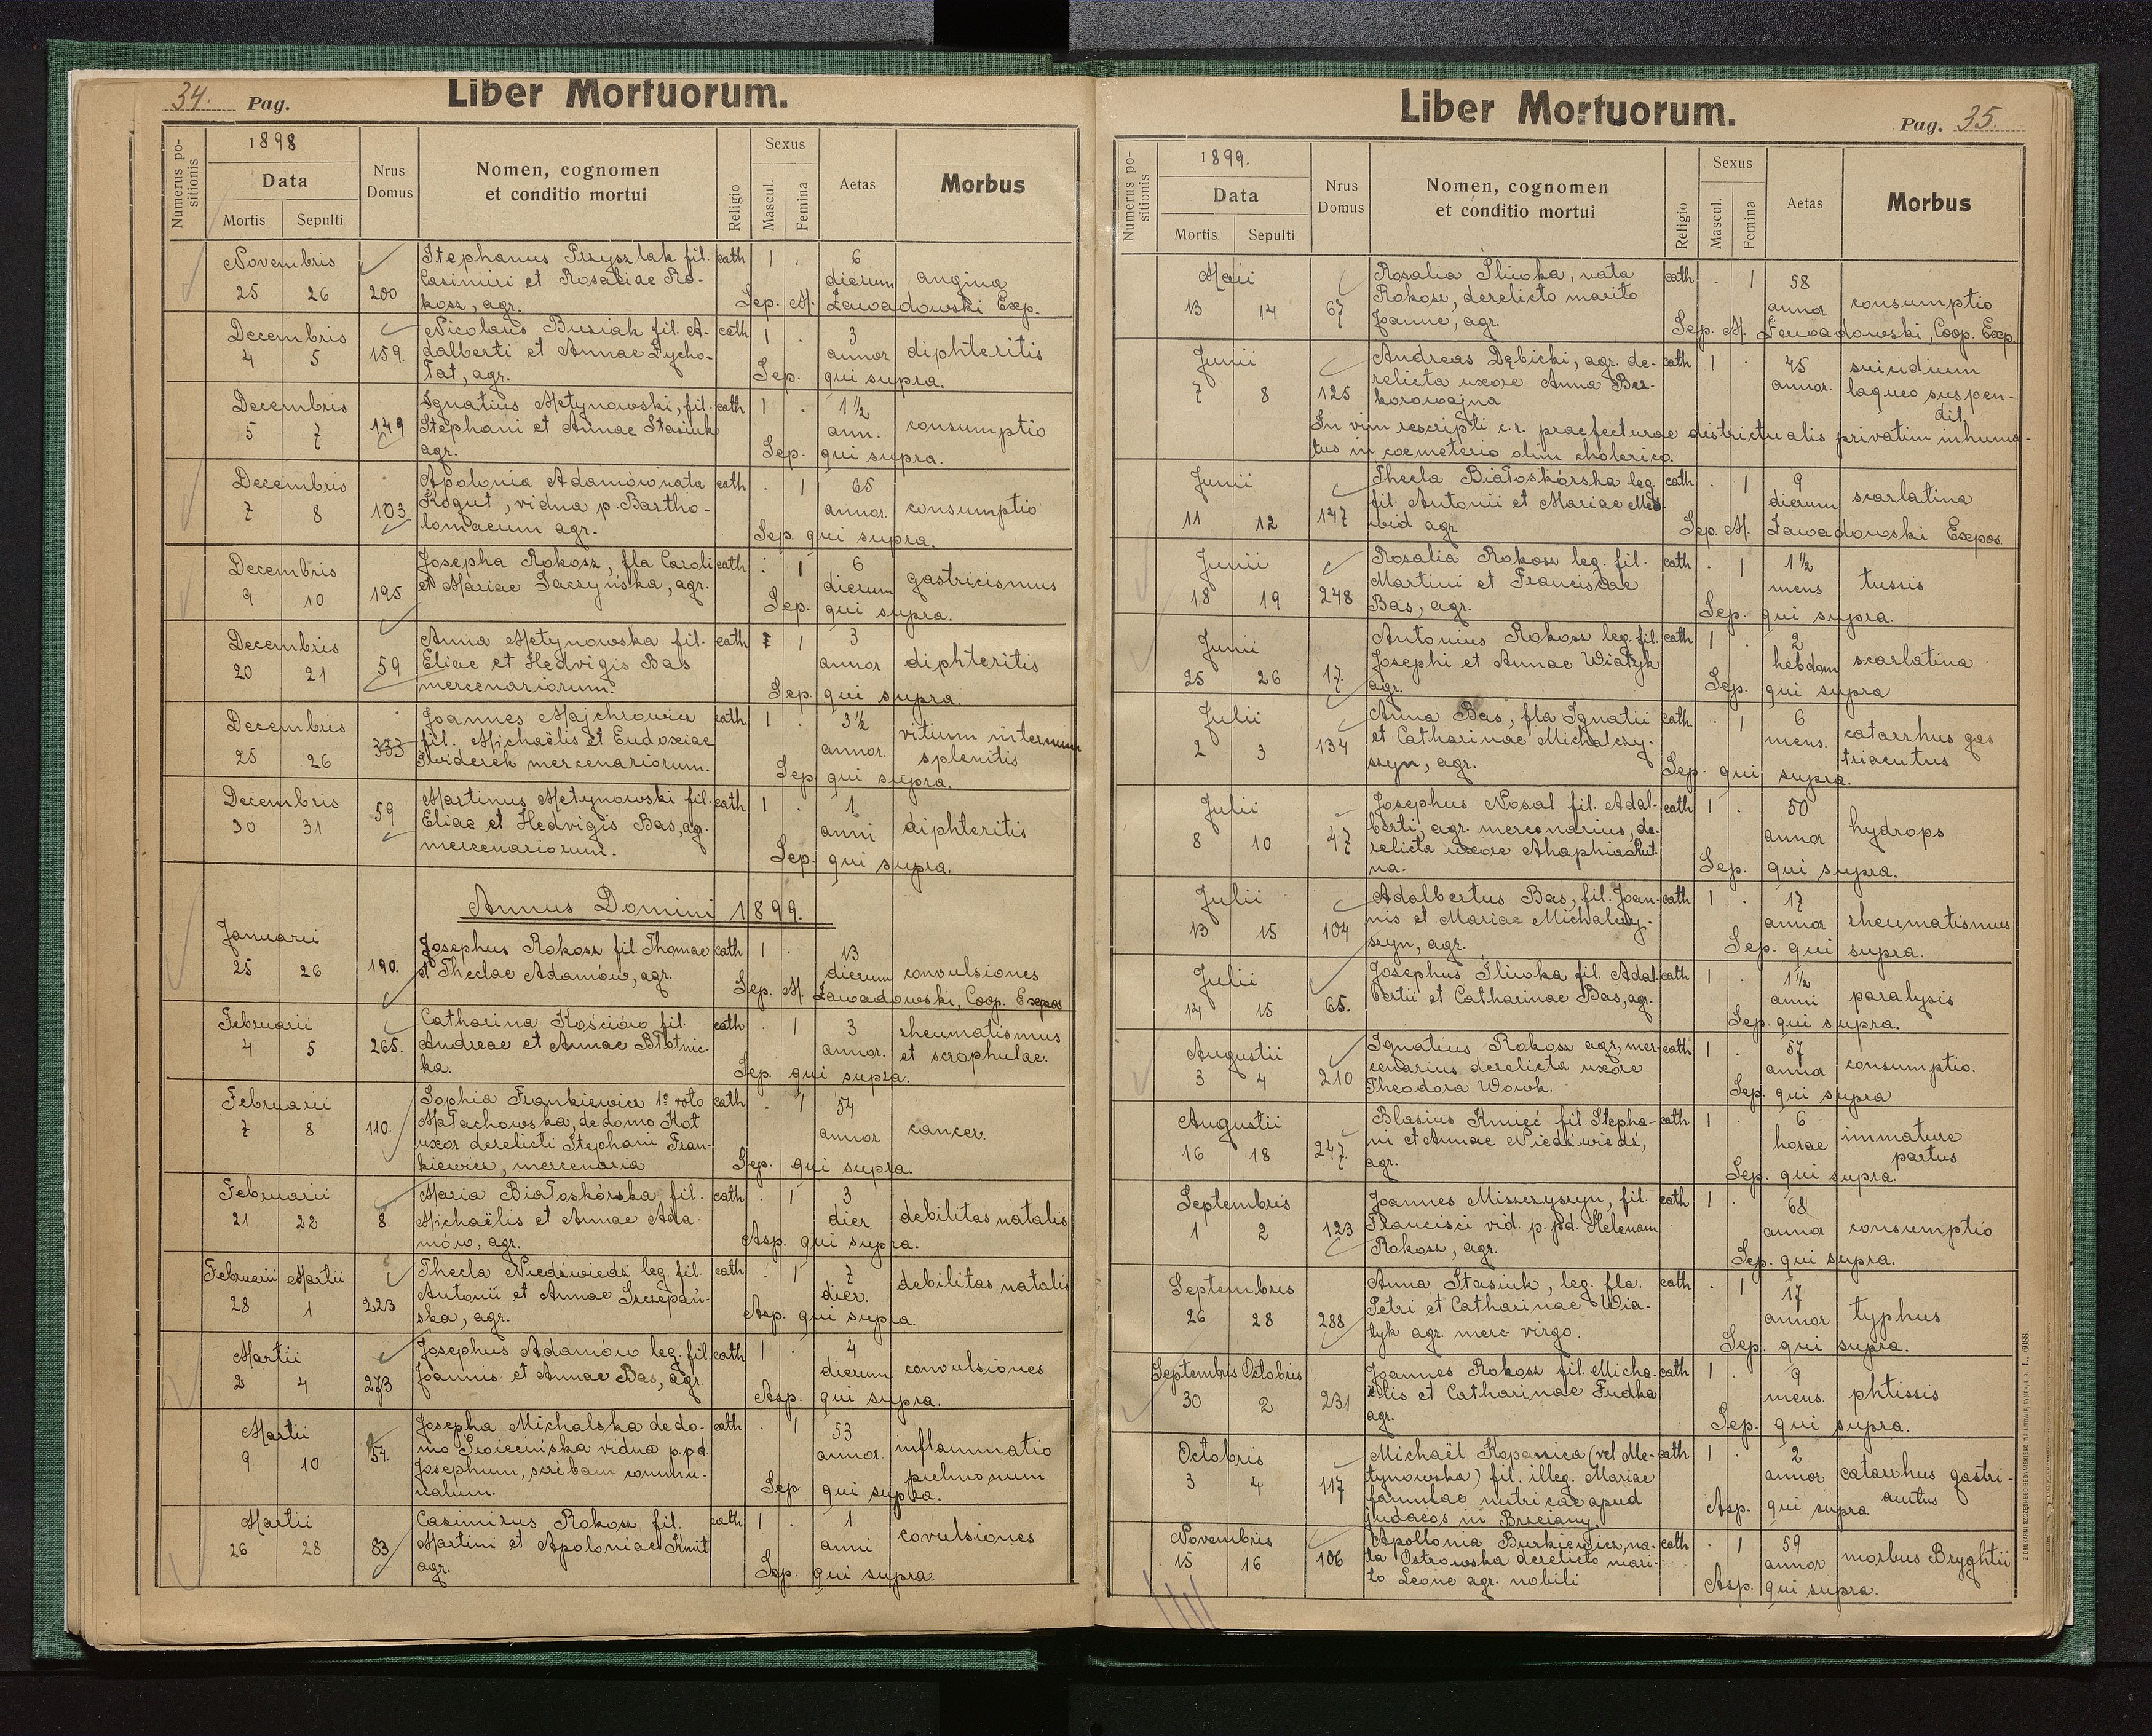 34. Pag. Liber Mortuorum.
Numerus positionis
1898
Data
Mortis Sepulti
Nrus Domus
Nomen, cognomen
et conditio mortui
Religio
Sexus
Mascul. Femina
Aetas
Morbus
Novembris
25 26 200
Stephanus Przyszlak fil.
Casimiri et Rosaliae Ro-
kosz, agr.
cath 1 .
6
dierum angina
Sep. M. Zawadowski Exp.
Decembris
4 5 159.
Nicolaus Busiak fil. A-
dalberti et Annae Lycho-
łat, agr.
cath 1 .
3
annor. diphteritis
Sep. qui supra.
Decembris
5 7 149
Ignatius Metynowski, fil.
Stephani et Annae Stasiuk
agr.
cath 1 .
1½
ann. consumptio
Sep. qui supra.
Decembris
7 8 103
Apolonia Adamów nata
Kogut, vidua p. Bartho-
lomaeum agr.
cath . 1
65
annor. consumptio
Sep. qui supra.
Decembris
9 10 195
Josepha Rokosz, fla Caroli
et Mariae Saczyńska, agr.
cath . 1
6
dierum gastricismus
Sep. qui supra.
Decembris
20 21 59
Anna Metynowska fil.
Eliae et Hedvigis Bas
mercenariorum.
cath 1
3
annor diphteritis
Sep. qui supra.
Decembris
25 26 333
Joannes Majchrowicz
fil. Michaëlis et Eudoxiae
Świderek mercenariorum.
cath 1 .
3½
annor. vitium internum
splenitis
Sep. qui supra.
Decembris
30 31 59
Martinus Metynowski fil.
Eliae et Hedvigis Bas, agr.
mercenariorum.
cath 1 .
1
anni diphteritis
Sep. qui supra.
Annus Domini 1899.
Januarii
25 26 190.
Josephus Rokosz fil. Thomae
et Theclae Adamów, agr.
cath 1 .
13
dierum convulsiones
Sep. M. Zawadowski, Coop. Expos
Februarii
4 5 265.
Catharina Kościów fil.
Andreae et Annae Błotnic-
ka.
cath . 1
3
annor. rheumatismus
et scrophulae.
Sep. qui supra.
Februarii
7 8 110.
Sophia Frankiewicz 1º voto
Małachowska, de domo Kot
uxor derelicti Stephani Fran-
kiewicz, mercenaria
cath . 1
54
annor cancer.
Sep. qui supra.
Februarii
21 22 8.
Maria Białoskórska fil.
Michaëlis et Annae Ada-
mów, agr.
cath . 1
3
dier. debilitas natalis
Asp. qui supra.
Februarii Martii
28 1 223
Thecla Niedźwiedź leg. fil.
Antonii et Annae Szczepań-
ska, agr.
cath . 1
7
dier. debilitas natalis
Asp. qui supra.
Martii
2 4 273
Josephus Adamów leg. fil.
Joannis et Annae Bas, agr.
cath 1 .
4
dierum convulsiones
Asp. qui supra.
Martii
9 10 54.
Josepha Michalska de do-
mo Świecińska vidua p. pd.
Josephum, scribam commu-
nalum.
cath . 1
53
annor. inflammatio
pulmonum
Sep. qui supra.
Martii
26 28 83
Casimirus Rokosz fil.
Martini et Apoloniae Kmit
agr.
cath 1 .
1
anni covulsiones
Sep. qui supra.
Liber Mortuorum. Pag. 35.
Numerus positionis
1899.
Data
Mortis Sepulti
Nrus Domus
Nomen, cognomen
et conditio mortui
Religio
Sexus
Mascul. Femina
Aetas
Morbus
Maii
13 14 67
Rosalia Śliwka, nata
Rokosz, derelicto marito
Joanne, agr.
cath . 1
58
annor consumptio
Sep. M. Zawadowski, Coop. Exp.
Junii
7 8 125
Andreas Dębicki, agr. de-
relicta uxore Anna Ber-
korowajna
cath 1 .
45
annor. suicidium
laqueo suspen-
dit.
In vim rescripti c. r. praefecturae districtualis privatim inhuma-
tus in coemeterio olim cholerico.
Junii
11 12 147
Thecla Białoskórska leg.
fil. Antonii et Mariae Med-
wid agr.
cath . 1
9
dierum scarlatina
Sep. M. Zawadowski Expos.
Junii
18 19 248
Rosalia Rokosz leg. fil.
Martini et Franciscae
Bas, agr.
cath . 1
1½
mens tussis
Sep. qui supra.
Junii
25 26 17.
Antonius Rokosz leg. fil.
Josephi et Annae Wiatyk
agr.
cath 1 .
2
hebdom scarlatina
Sep. qui supra
Julii
2 3 134
Anna Bas, fla Ignatii
et Catharinae Michalczy-
szyn, agr.
cath . 1
6
mens. catarrhus gas
triacutus
Sep. qui supra.
Julii
8 10 47
Josephus Nosal fil. Adal-
berti, agr. mercenarius, de-
relicta uxore Ahaphia Hut-
na.
cath 1 .
50
annor hydrops
Sep. qui supra.
Julii
13 15 104
Adalbertus Bas, fil. Joan-
nis et Mariae Michalczy-
szyn, agr.
cath 1 .
17
annor rheumatismus
Sep. qui supra.
Julii
14 15 65.
Josephus Śliwka fil. Adal-
bertii et Catharinae Bas, agr.
cath 1 .
1½
anni paralysis
Sep. qui supra.
Augustii
3 4 210
Ignatius Rokosz agr, mer-
cenarius derelicta uxore
Theodora Wowk.
cath 1 .
57
annor consumptio.
Sep. qui supra
Augustii
16 18 247.
Blasius Kmieć fil. Stepha-
ni et Annae Niedźwiedź,
agr.
cath 1 .
6
horae immature
partus
Sep. qui supra.
Septembris
1 2 123
Joannes Miszczyszyn, fil.
Francisci vid. p. pd. Helenam
Rokosz, agr.
cath 1 .
68
annor consumptio
Sep. qui supra.
Septembris
26 28 288
Anna Stasiuk, leg. fla.
Petri et Catharinae Wia-
tyk agr. merc. virgo.
cath . 1
17
annor typhus
Sep. qui supra.
Septembris Octobris
30 2 231
Joannes Rokosz fil. Micha-
ëlis et Catharinae Fudka
agr.
cath 1 .
9
mens. phtissis
Sep. qui supra.
Octobris
3 4 117
Michaël Kopanica (vel Me-
tynowska) fil. illeg. Mariae
famulae nutricae apud
judaeos in Brzeciany.
cath 1 .
2
annor catarrhus gastri-
acutus
Asp. qui supra
Novembris
15 16 106
Apollonia Burkiewicz, na-
ta Ostrowska derelicto mari-
to Leone agr. nobili
cath . 1
59
annor morbus Bryghtii
Asp. qui supra.